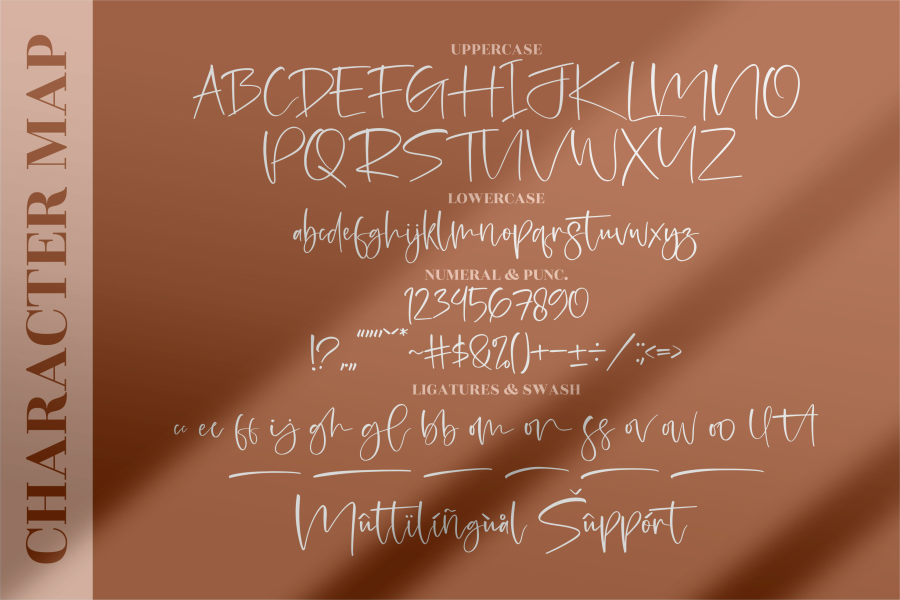 CHARACTER MAP
UPPERCASE
ABCDEFGHIJKLMNO
PQRSTUVWXYZ
LOWERCASE
abcdefghijklmnopqrstuvwxyz
NUMERAL & PUNC.
1234567890
!?.,„“”‘’"'ˇ* ~#$&%()+−–±÷/:;<=>
LIGATURES & SWASH
cc ee ff ij gh gl bb om on ss ov ow oo ll tt
Mûttïlíñgùål Šûppórt